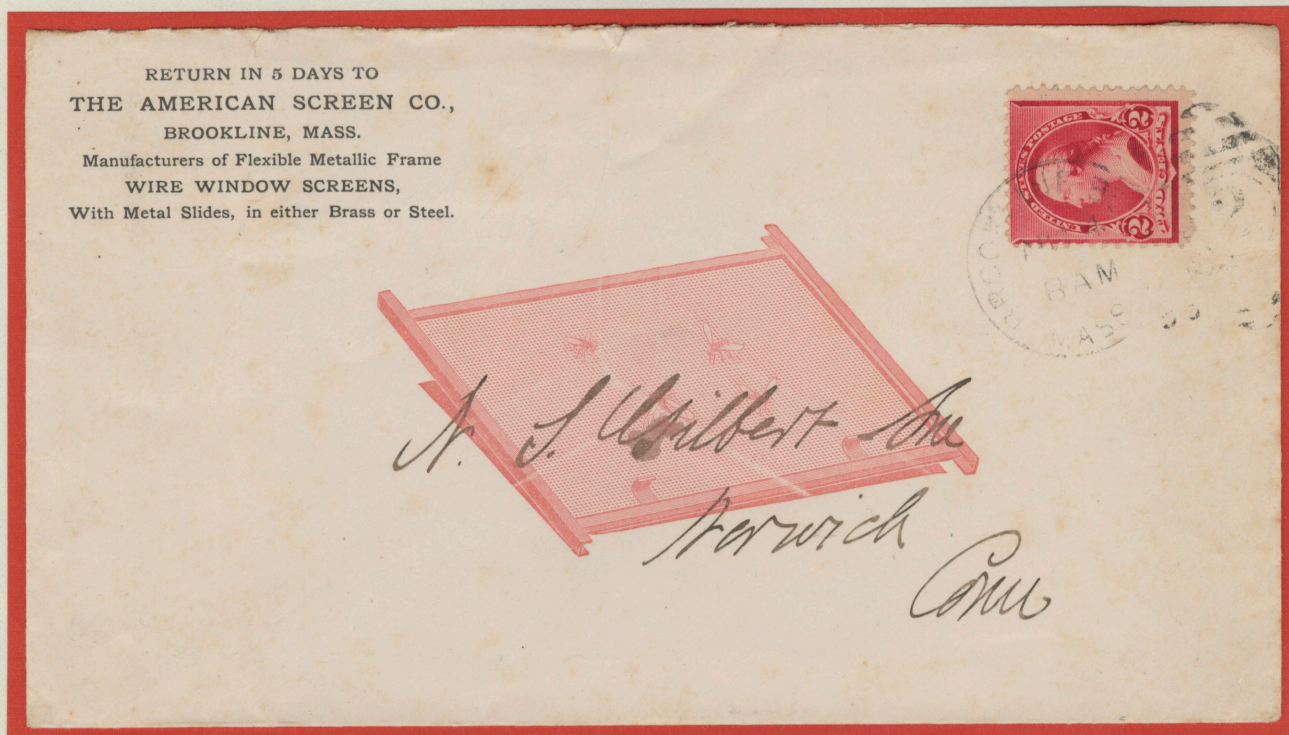 RETURN IN 5 DAYS TO
THE AMERICAN SCREEN CO.,
BROOKLINE, MASS.
Manufacturers of Flexible Metallic Frame
WIRE WINDOW SCREENS,
With Metal Slides, in either Brass or Steel.
UNITED STATES POSTAGE
2 2
8 AM
MASS
N. S. Gilbert
Norwich
Conn